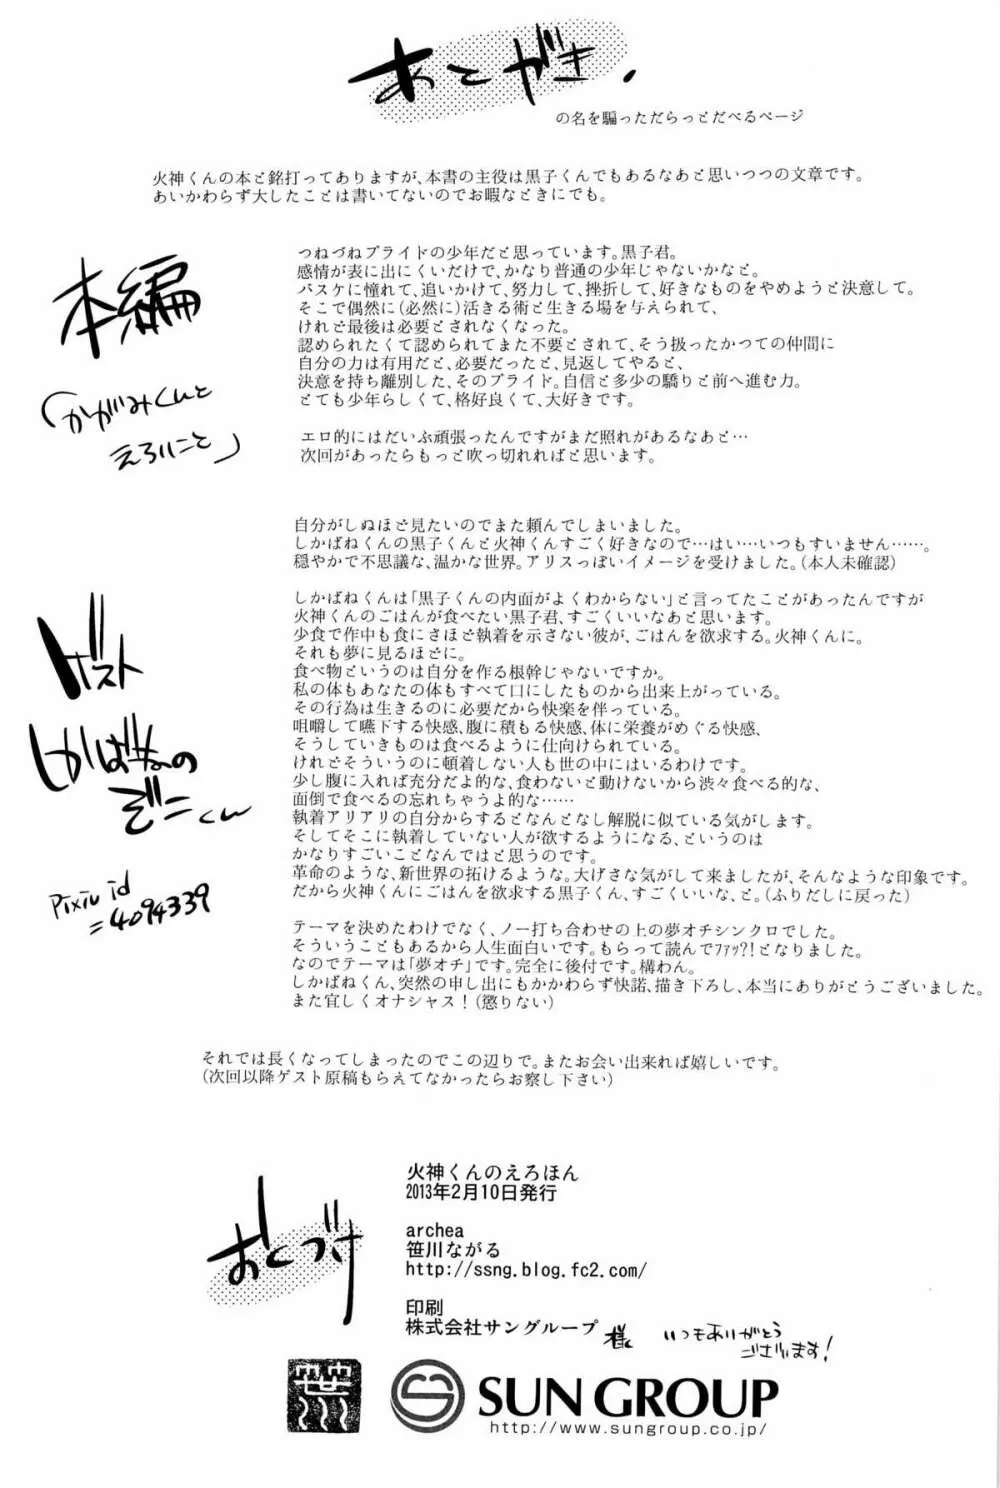 あとがき.
の名を騙っただらっとだべるページ
火神くんの本と銘打ってありますが、本書の主役は黒子くんでもあるなあと思いつつの文章です。
あいかわらず大したことは書いてないのでお暇なときにでも。
本編
「かがみくんと
えろいこと」
つねづねプライドの少年だと思っています。黒子君。
感情が表に出にくいだけで、かなり普通の少年じゃないかなと。
バスケに憧れて、追いかけて、努力して、挫折して、好きなものをやめようと決意して。
そこで偶然に(必然に)活きる術と生きる場を与えられて、
けれど最後は必要とされなくなった。
認められたくて認められてまた不要とされて、そう扱ったかつての仲間に
自分の力は有用だと、必要だったと、見返してやると、
決意を持ち離別した、そのプライド。自信と多少の驕りと前へ進む力。
とても少年らしくて、格好良くて、大好きです。
エロ的にはだいぶ頑張ったんですがまだ照れがあるなあと…
次回があったらもっと吹っ切れればと思います。
ゲスト
しかばねの
ぞニくん
Pixiv id
=4094339
自分がしぬほど見たいのでまた頼んでしまいました。
しかばねくんの黒子くんと火神くんすごく好きなので…はい…いつもすいません……。
穏やかで不思議な、温かな世界。アリスっぽいイメージを受けました。(本人未確認)
しかばねくんは「黒子くんの内面がよくわからない」と言ってたことがあったんですが
火神くんのごはんが食べたい黒子君、すごくいいなあと思います。
少食で作中も食にさほど執着を示さない彼が、ごはんを欲求する。火神くんに。
それも夢に見るほどに。
食べ物というのは自分を作る根幹じゃないですか。
私の体もあなたの体もすべて口にしたものから出来上がっている。
その行為は生きるのに必要だから快楽を伴っている。
咀嚼して嚥下する快感、腹に積もる快感、体に栄養がめぐる快感、
そうしていきものは食べるように仕向けられている。
けれどそういうのに頓着しない人も世の中にはいるわけです。
少し腹に入れば充分だよ的な、食わないと動けないから渋々食べる的な、
面倒で食べるの忘れちゃうよ的な……
執着アリアリの自分からするとなんとなし解脱に似ている気がします。
そしてそこに執着していない人が欲するようになる、というのは
かなりすごいことなんではと思うのです。
革命のような、新世界の拓けるような。大げさな気がして来ましたが、そんなような印象です。
だから火神くんにごはんを欲求する黒子くん、すごくいいな、と。(ふりだしに戻った)
テーマを決めたわけでなく、ノー打ち合わせの上の夢オチシンクロでした。
そういうこともあるから人生面白いです。もらって読んでﾌｧｯ?!となりました。
なのでテーマは「夢オチ」です。完全に後付です。構わん。
しかばねくん、突然の申し出にもかかわらず快諾、描き下ろし、本当にありがとうございました。
また宜しくオナシャス!(懲りない)
それでは長くなってしまったのでこの辺りで。またお会い出来れば嬉しいです。
(次回以降ゲスト原稿もらえてなかったらお察し下さい)
おくづけ
火神くんのえろほん
2013年2月10日発行
archea
笹川ながる
http://ssng.blog.fc2.com/
印刷
株式会社サングループ 様 いつもありがとう
ございます!
SUN GROUP
http://www.sungroup.co.jp/